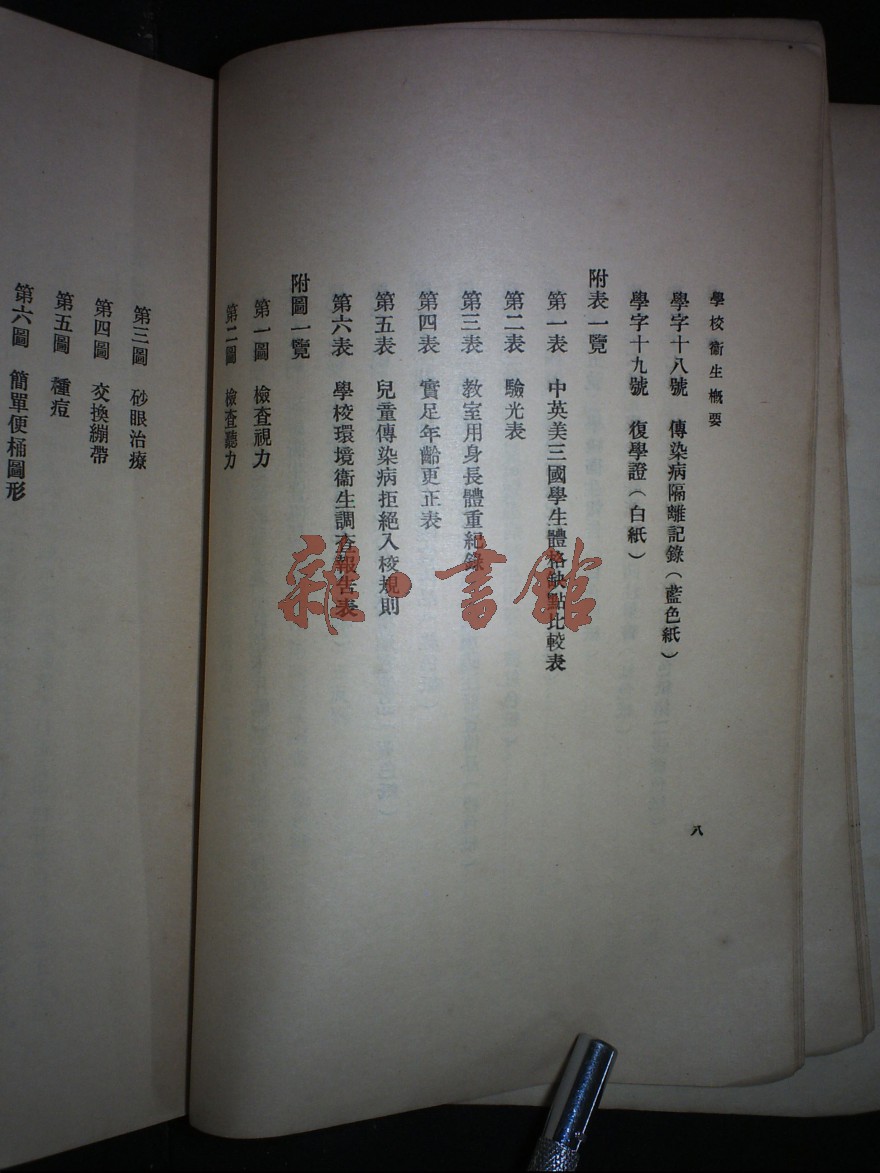 學校衞生概要
學字十八號　傳染病隔離記錄（藍色紙）
學字十九號　復學證（白紙）
附表一覽
第一表　中英美三國學生體格缺點比較表
第二表　驗光表
第三表　教室用身長體重紀錄
第四表　實足年齡更正表
第五表　兒童傳染病拒絕入校規則
第六表　學校環境衞生調查報告表
附圖一覽
第一圖　檢查視力
第二圖　檢查聽力
八
第三圖　砂眼治療
第四圖　交換綳帶
第五圖　種痘
第六圖　簡單便桶圖形
雜·書館